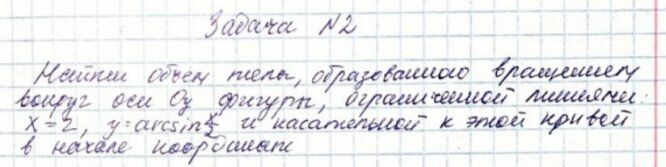 Задача №2
Найти объем тела, образованного вращением
вокруг оси Oy фигуры, ограниченной линиями
x=2, y=arcsin x/2 и касательной к этой кривой
в начале координат